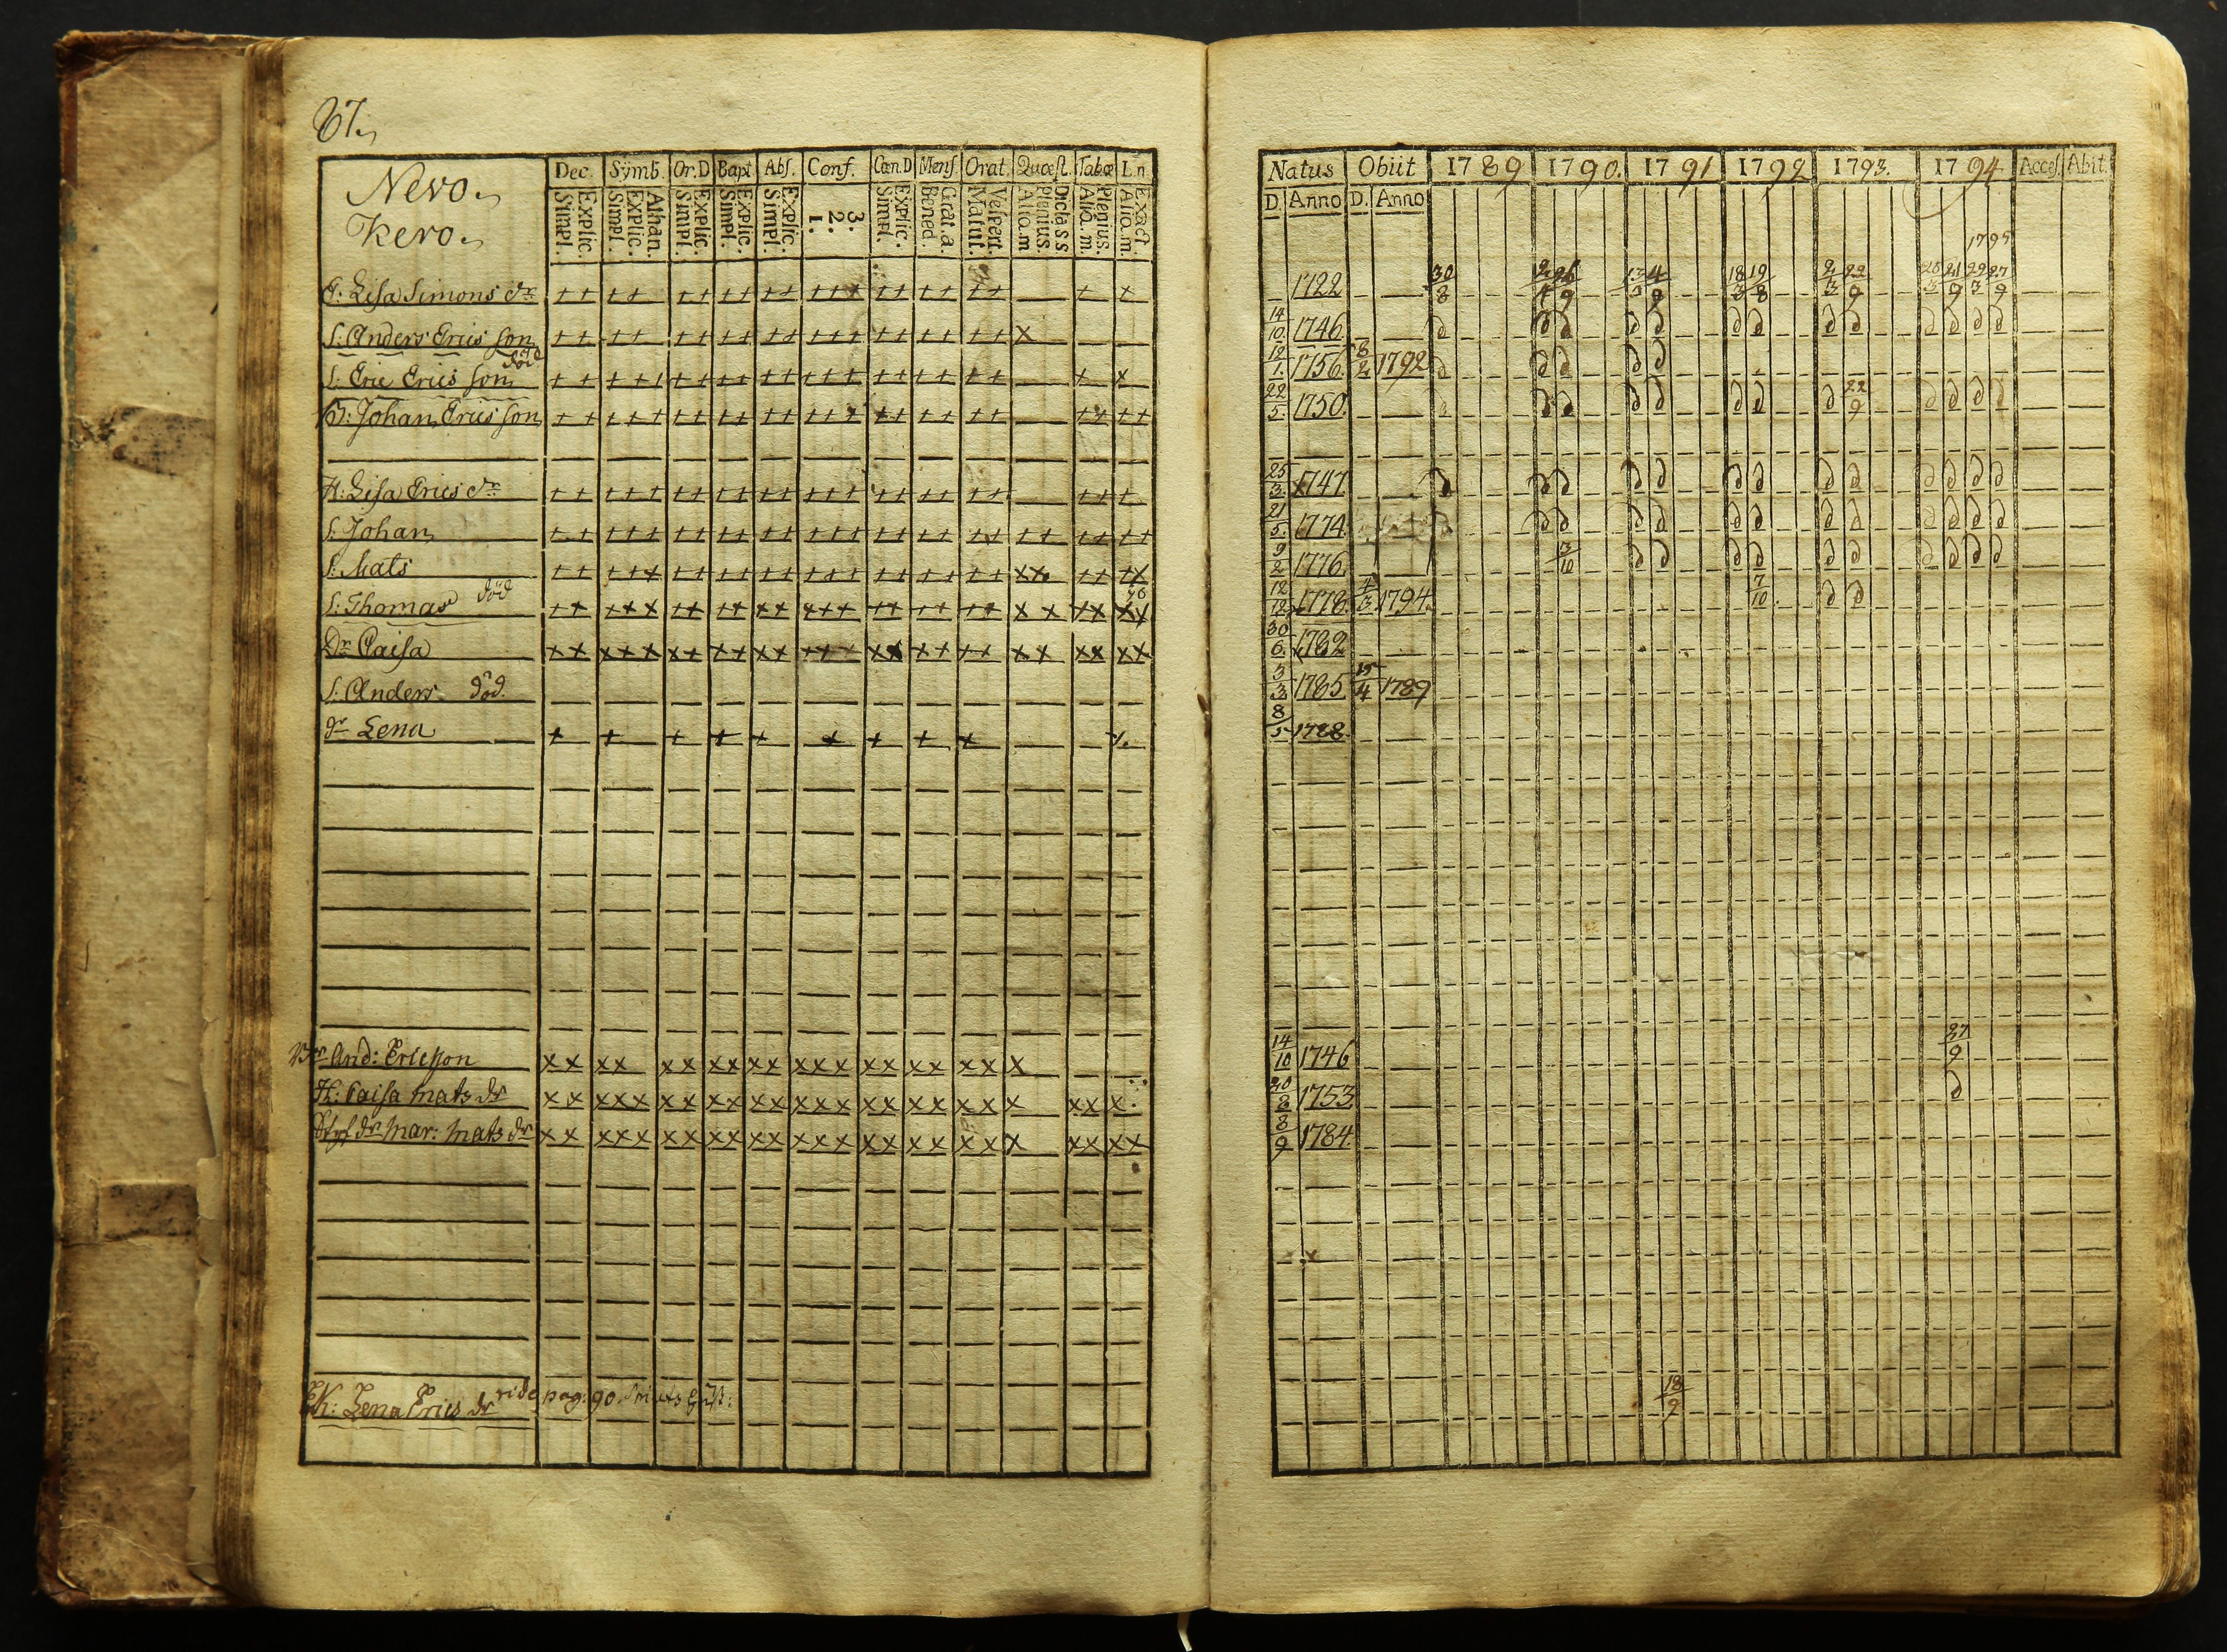 67.
Nevo.
Kero.
Dec. Symb. Or.D Bapt. Abs. Conf. Cœn.D Mens. Orat. Quæst. Tabœ L.n.
Simpl. Explic. Simpl. Explic. Athan. Simpl. Explic. Simpl. Explic. Simpl. Explic. 1. 2. 3. Simpl. Explic. Bened. Grat.a. Matut. Vespert. Aliq.m Plenius. Aliq.m. Plenius. Aliq.m. Exact.
E: Lisa Simons dr
S: Anders Erics son
S: Eric Erics son död
B: Johan Erics son
H: Lisa Erics dr
S: Johan
S: Mats
S: Thomas död
Dr Caisa
S: Anders död.
dr Lena
And: Ericsson
H: Caisa Mats dr
Mar: Mats dr
Lena Erics dr vide pag: 90
Natus Obiit 1789 1790. 1791 1792 1793. 1794. Access. Abit.
D. Anno D. Anno
1795
1722 30/8 18/3 19/8
14/10. 1746.
12/1. 1756. 8/2 1792
22/5. 1750. 22/9
25/3 1747
21/5. 1774.
9/2 1776. 3/10
12/12 1778. 4/3 1794. 7/10
30/6. 1782
3/3 1785 15/4 1789
8/5 1788
14/10 1746 27/9
20/2 1753
8/9 1784.
18/9